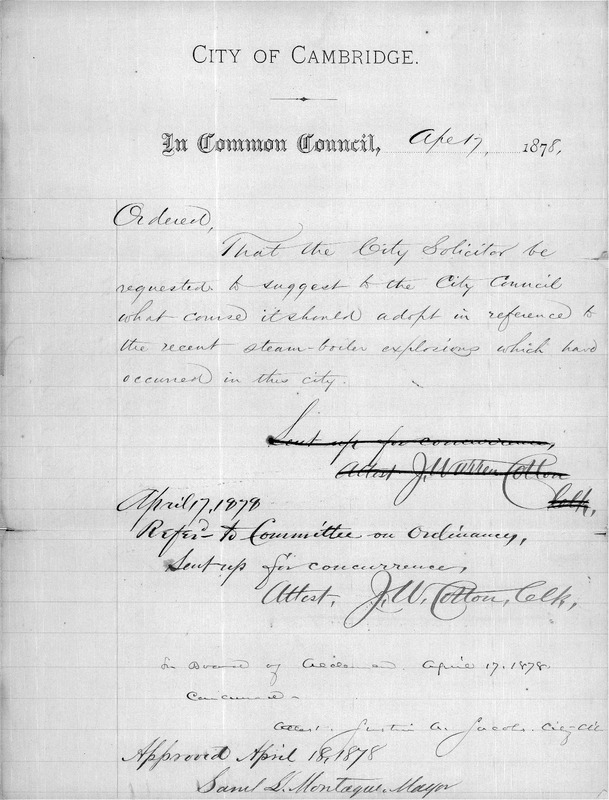 CITY OF CAMBRIDGE.
In Common Council, Ap 17, 1878,
Ordered,
That the City Solicitor be
requested to suggest to the City Council
what course it should adopt in reference to
the recent steam-boiler explosions which have
occurred in this city.
Sent up for concurrence,
Attest J. Warren Cotton
Clk,
April 17, 1878
Refer'd to Committee on Ordinances,
Sent up for concurrence,
Attest, J. W. Cotton, Clk,
In Board of Aldermen. April 17. 1878.
Concurred
Attest. Justin A. Jacobs. City
Approved April 18, 1878
Saml L. Montague, Mayor